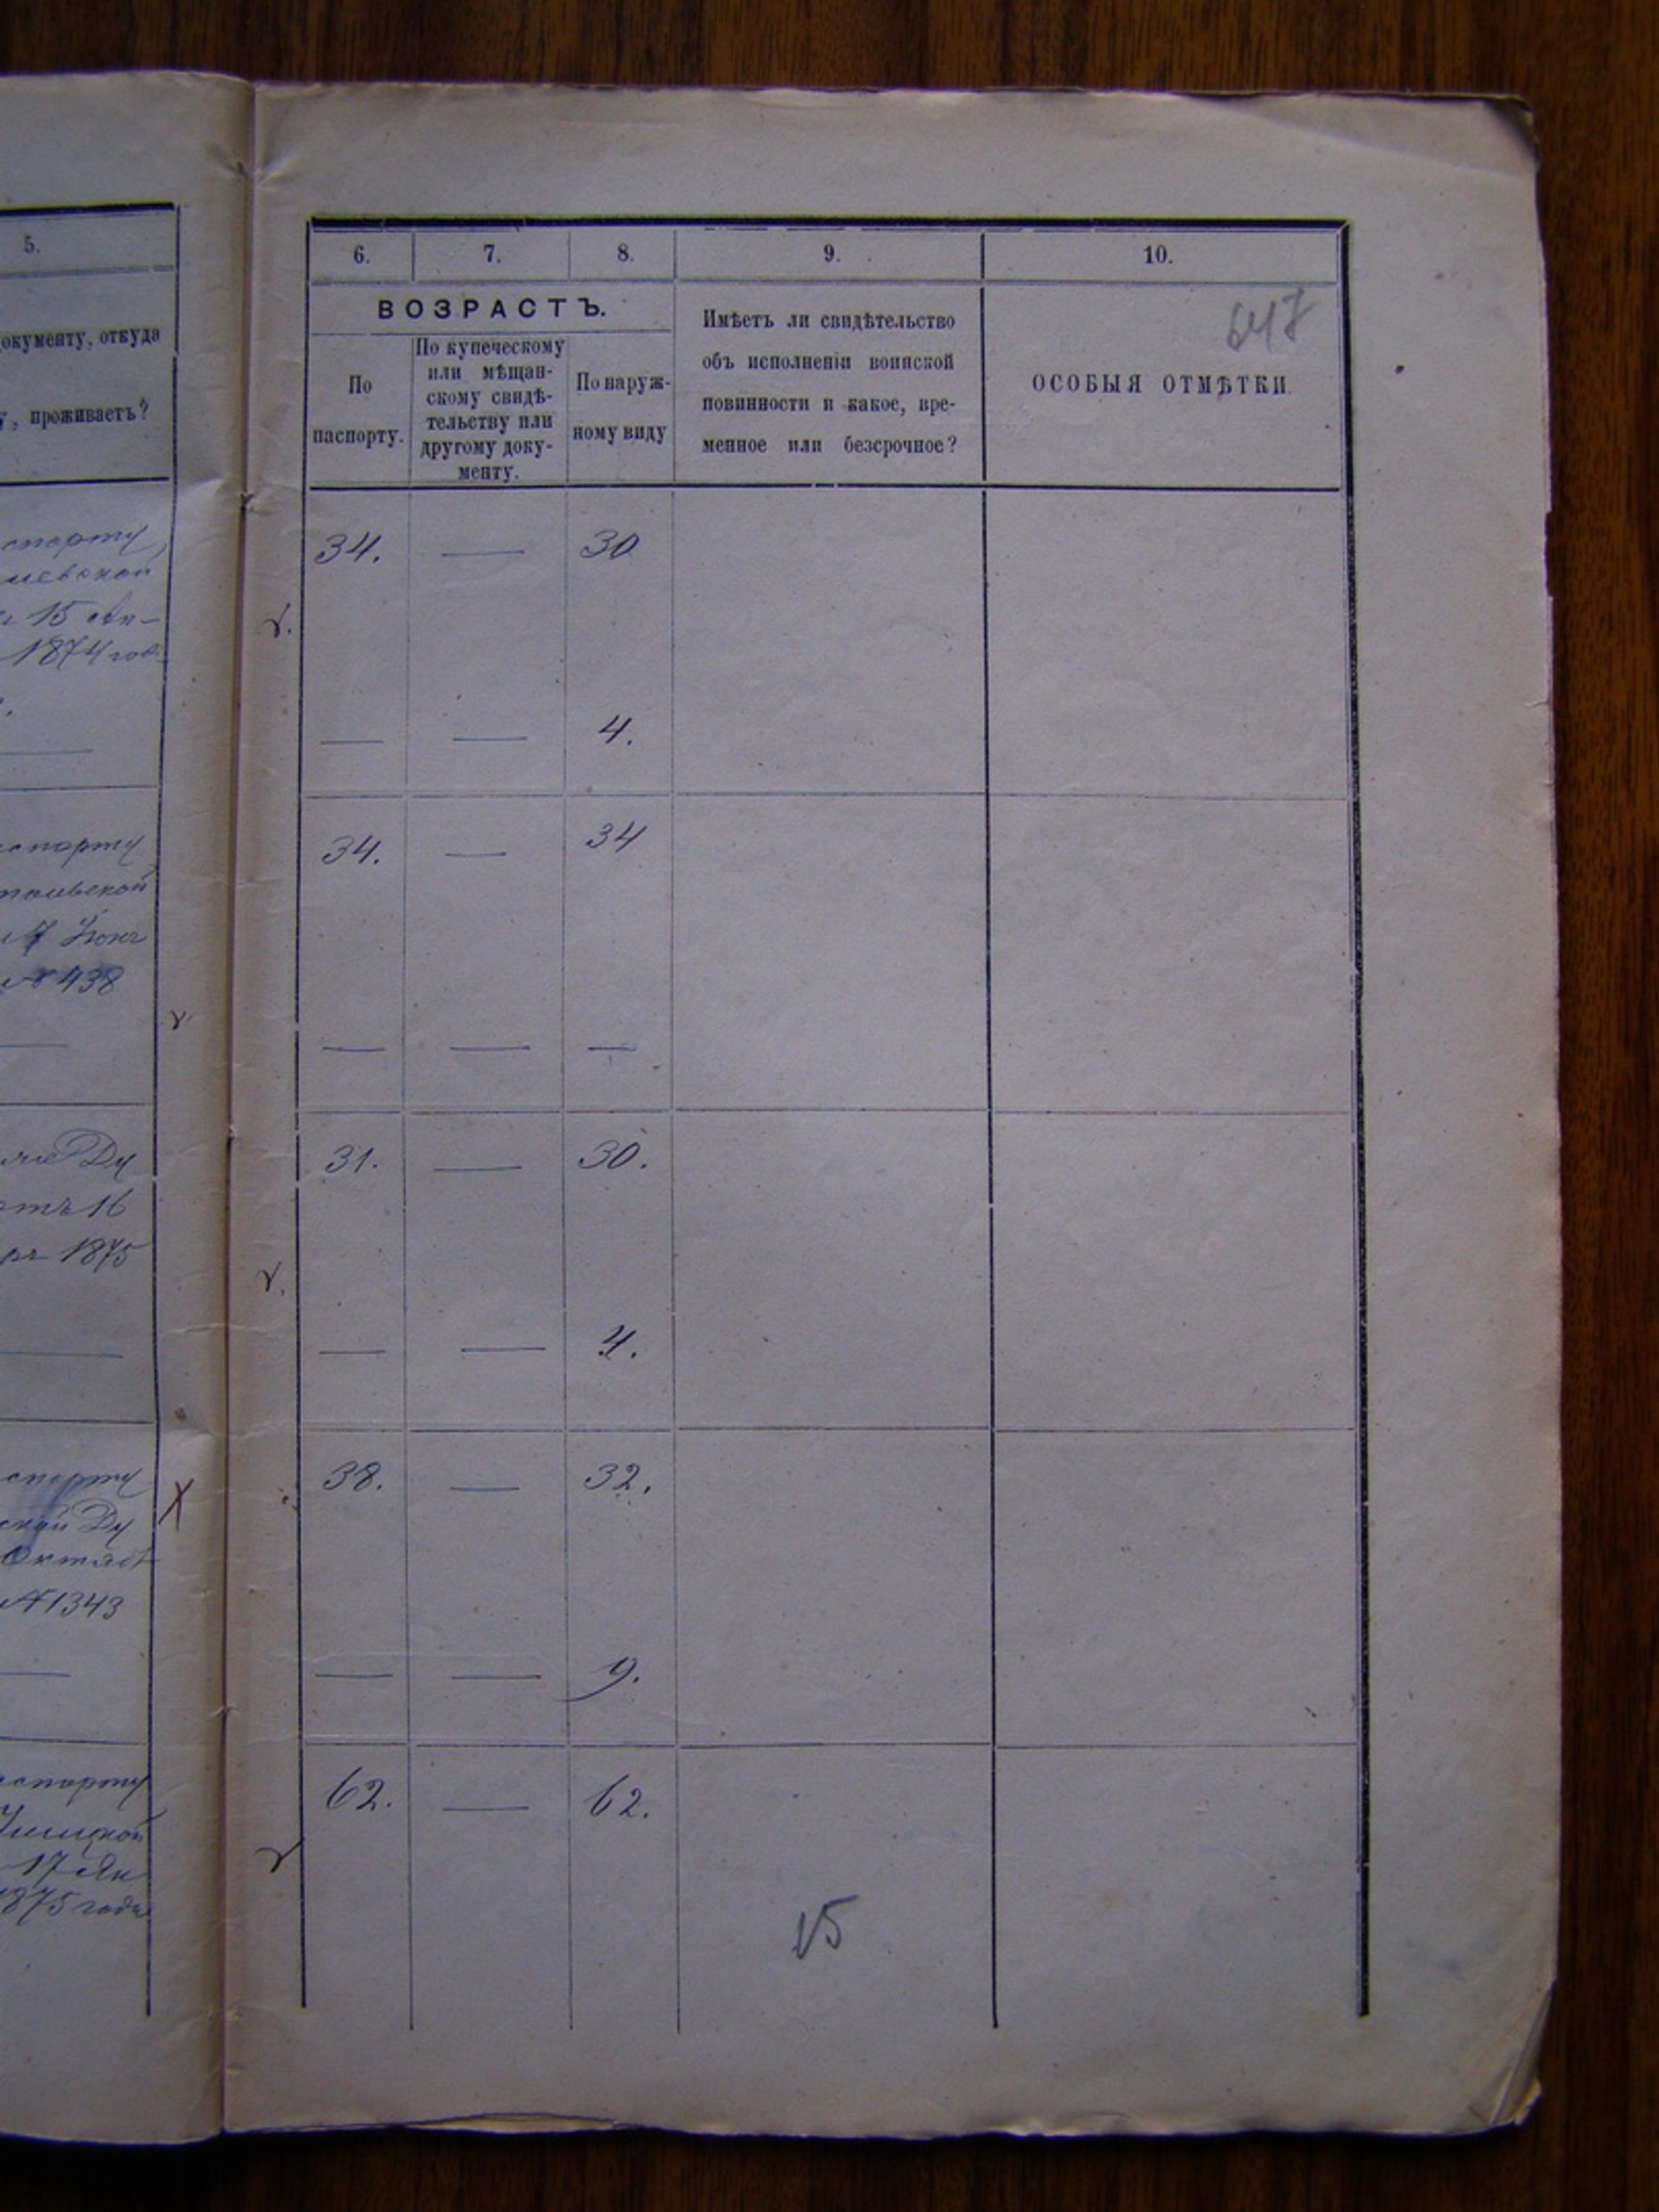 5.
окументу, откуда
, проживаетъ?
спорту,
15
1874 год.
спорту
№ 438
Ду
16
1875
спорту
ской Ду
Октяб
№ 1343
спорту
17 Ян
1875 года
6. 7. 8. 9. 10.
647
ВОЗРАСТЪ.
По
паспорту.
По купеческому
или мѣщан-
скому свидѣ-
тельству или
другому доку-
менту.
По наруж-
ному виду
Имѣетъ ли свидѣтельство
объ исполненіи воинской
повинности и какое, вре-
менное или безсрочное?
ОСОБЫЯ ОТМѢТКИ.
34. — 30
— — 4.
34. — 34
— — —
31. — 30.
— — 4.
38. — 32.
— — 9.
62. — 62.
15